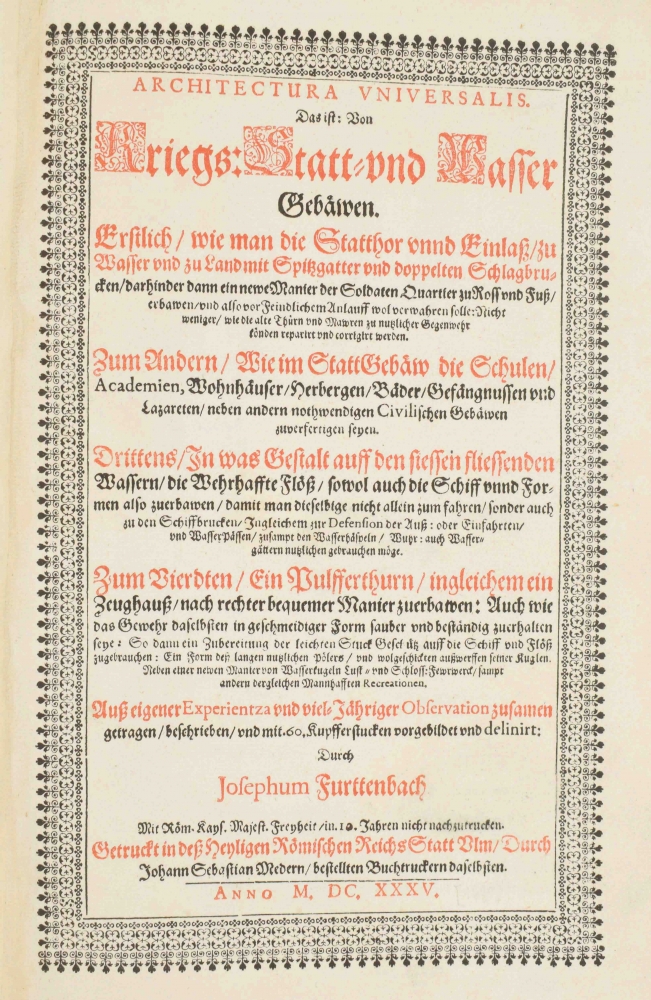 ARCHITECTURA VNIVERSALIS.
Das ist: Von
Kriegs: Statt- vnd Wasser
Gebäwen.
Erstlich / wie man die Statthor vnnd Einlaß / zu
Wasser vnd zu Land mit Spitzgatter vnd doppelten Schlagbru-
cken / darhinder dann ein newe Manier der Soldaten Quartier zu Ross vnd Fuß /
erbawen / vnd also vor Feindlichem Anlauff wol verwahren solle: Nicht
weniger / wie die alte Thürn vnd Mawren zu nutzlicher Gegenwehr
könden repariert vnd corrigirt werden.
Zum Andern / Wie im StattGebäw die Schulen /
Academien, Wohnhäuser / Herbergen / Bäder / Gefängnussen vnd
Lazareten / neben andern nothwendigen Civilischen Gebäwen
zuverfertigen seyen.
Drittens / In was Gestalt auff den stessen fliessenden
Wassern / die Wehrhaffte Flöß / sowol auch die Schiff vnnd For-
men also zuerbawen / damit man dieselbige nicht allein zum fahren / sonder auch
zu den Schiffbrucken / Ingleichem zur Defension der Auß: oder Einfahrten /
vnd WasserPässen / zusampt den Wasserhäspeln / Wuhr: auch Wasser-
gättern nutzlichen gebrauchen möge.
Zum Vierdten / Ein Pulfferthurn / ingleichem ein
Zeughauß / nach rechter bequemer Manier zuerbawen: Auch wie
das Gewehr daselbsten in geschmeidiger Form sauber vnd beständig zuerhalten
seye: So dann ein Zubereitung der leichten Stuck Geschütz auff die Schiff vnd Flöß
zugebrauchen: Ein Form deß langen nutzlichen Pölers / vnd wolgeschickten außwerffen seiner Kuglen.
Neben einer newen Manier von Wasserkugeln Lust- vnd Schloss: Fewrwerck / sampt
andern dergleichen Mannhafften Recreationen.
Auß eigener Experientza vnd viel-Jähriger Observation zusamen
getragen / beschrieben / vnd mit. 60. Kupfferstucken vorgebildet vnd delinirt:
Durch
Josephum Furttenbach
Mit Röm. Kays. Majest. Freyheit / in. 10. Jahren nicht nachzutrucken.
Getruckt in deß Heyligen Römischen Reichs Statt Vlm / Durch
Johann Sebastian Medern / bestellten Buchtruckern daselbsten.
ANNO M. DC. XXXV.